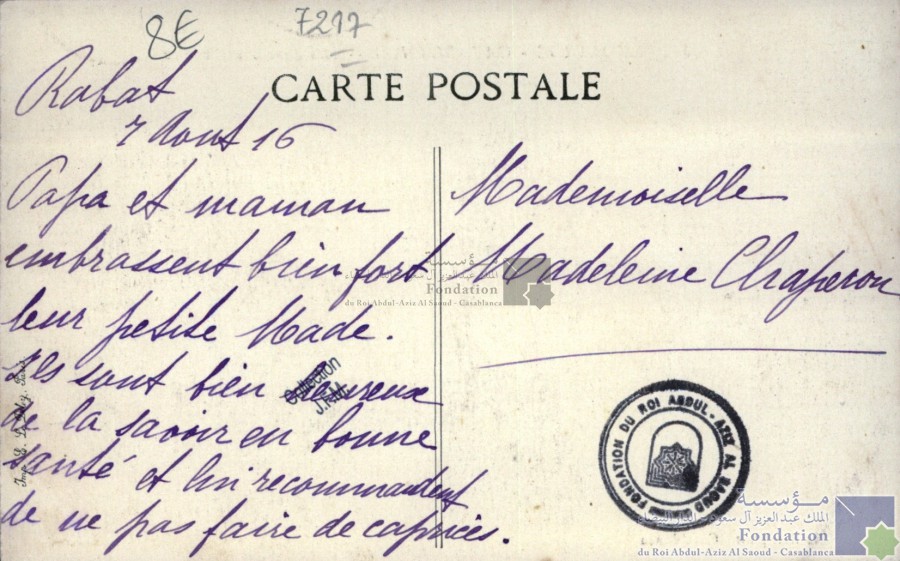 8E
7217
CARTE POSTALE
Rabat
7 Aout 16
Papa et maman
embrassent bien fort
leur petite Made.
Ils sont bien heureux
de la savoir en bonne
santé et lui recommandent
de ne pas faire de caprices.
Mademoiselle
Madeleine Chaperon
Collection
J.F.M.
Paris
مؤسسة
الملك عبد العزيز آل سعود
Fondation
du Roi Abdul-Aziz Al Saoud - Casablanca
FONDATION DU ROI ABDUL-AZIZ AL SAOUD
مؤسسة
الملك عبد العزيز آل سعود - الدار البيضاء
Fondation
du Roi Abdul-Aziz Al Saoud - Casablanca